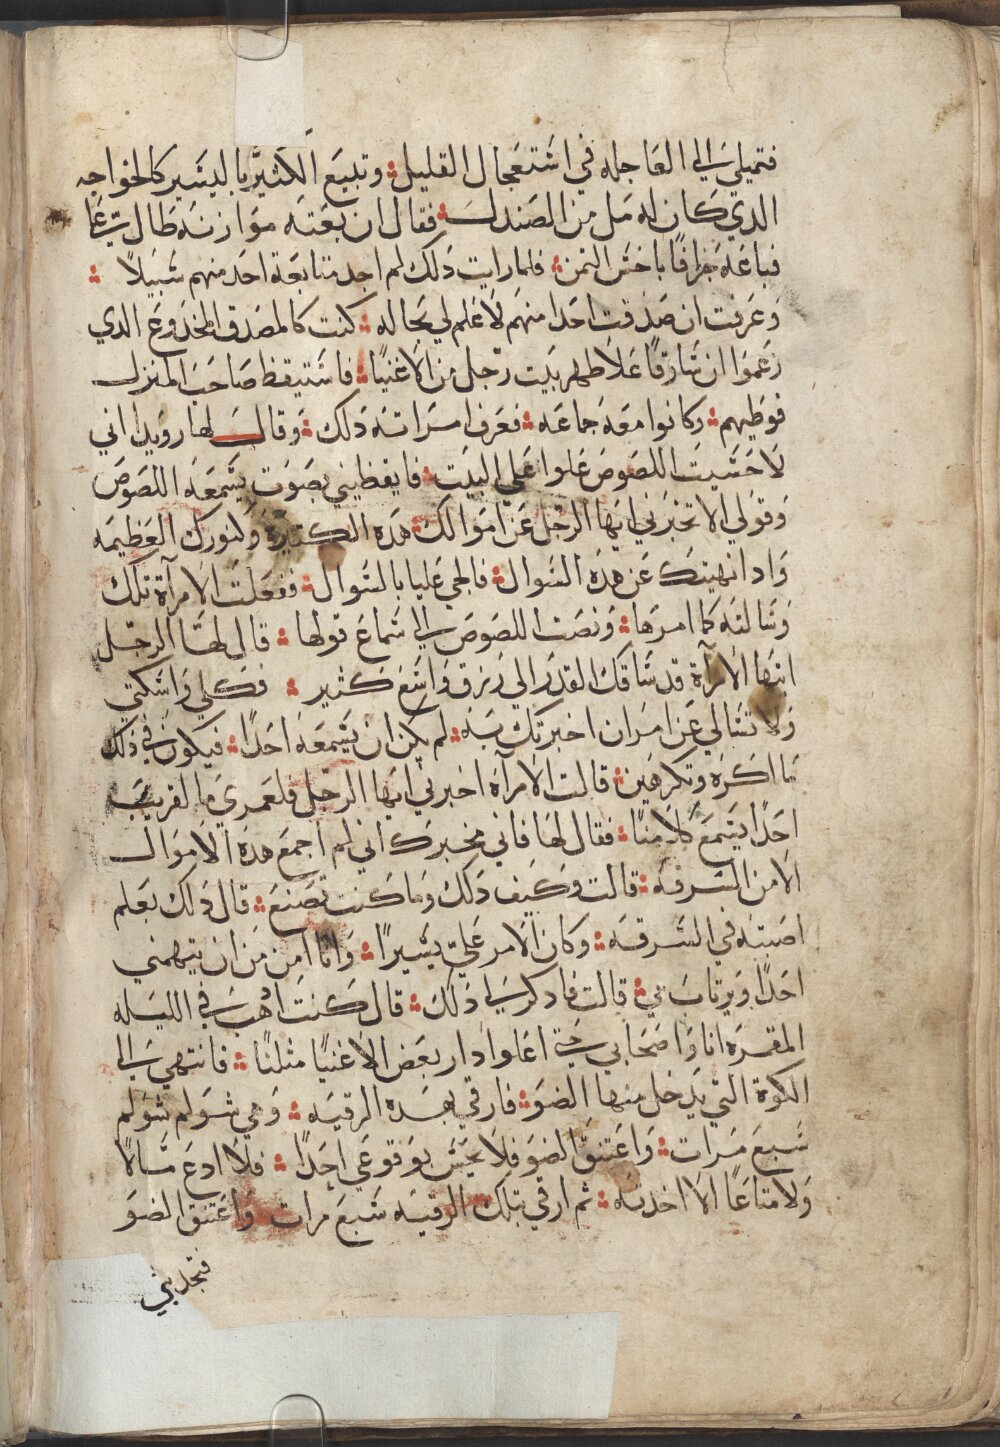 فتميلي الى العاجله في اشتعجال القليل؛ وتبيع الكثير باليشير كالخواجه
الدي كان له مل من الصندل؛ فقال ان بعته موازنه طال تبعا
فباعه جزافًا باخش التمن؛ فلما رايت دلك لم اجد متابعة احد منهم شبيلاً ؛
وعرفت ان صدقت احدا منهم لا علم لي بحاله؛ كنت كالمصدق المخدوع الدي
زعموا ان شارقًا علا ظهر بيت رجل من الاغنيا؛ فاشتيقظ صاحب المنزل
فوطيهم؛ وكانوا معه جماعه؛ فعرف امراته دلك؛ وقال لها رويدا اني
لاحشيت اللصوص علوا علي البيت؛ فايقظيني بصوت يشمعه اللصوص
وقولي الا تخبرني ايها الرجل عن اموالك هده الكتيرة وكنورك العظيمه
وادا نهيتك عن هده الشوال؛ فالحي عليا بالشوال؛ ففعلت الامرآة تلك
وشالته كما امرها؛ ونصت اللصوص الى شماع قولها ؛ قال لها الرجل
ايتها الامرآة قد شاقك القدر الي رزق واشع كثير ؛ فكلي واشكتي
ولا تشالي عن امر ان اخبرتك به؛ لم يكن ان يشمعه احدًا؛ فيكون في دلك
ما اكره وتكرهين؛ قالت الامرآة اخبرني ايها الرجل فلعمري ما لقريب
احدًا يشمع كلامنا؛ فقال لها فاني مخبرك اني لم اجمع هده الاموال
الا من الشرقه؛ قالت وكيف دلك وما كنت تصنع؛ قال دلك بعلم
اصبته في الشرقه؛ وكان الامر علي يشيرًا؛ وانا امن من ان يتهمني
احدًا ويرتاب بي؛ قالت فادكر لي دلك؛ قال كنت ادهب في الليله
المقمره انا واصحابي حتى اعلوا دار بعض الاغنيا مثلنا؛ فانتهي الى
الكوة التي يدخل منها الضو؛ فارقي بهده الرقيه؛ وهي شولم شولم
شبع مرات؛ واعتنق الضو فلا يحش بوقوعي احدًا؛ فلا ادع مالاً
ولا متاعًا الا اخدته؛ ثم ارقي بتلك الرقيه شبع مرات واعتنق الضو
فتجدبني